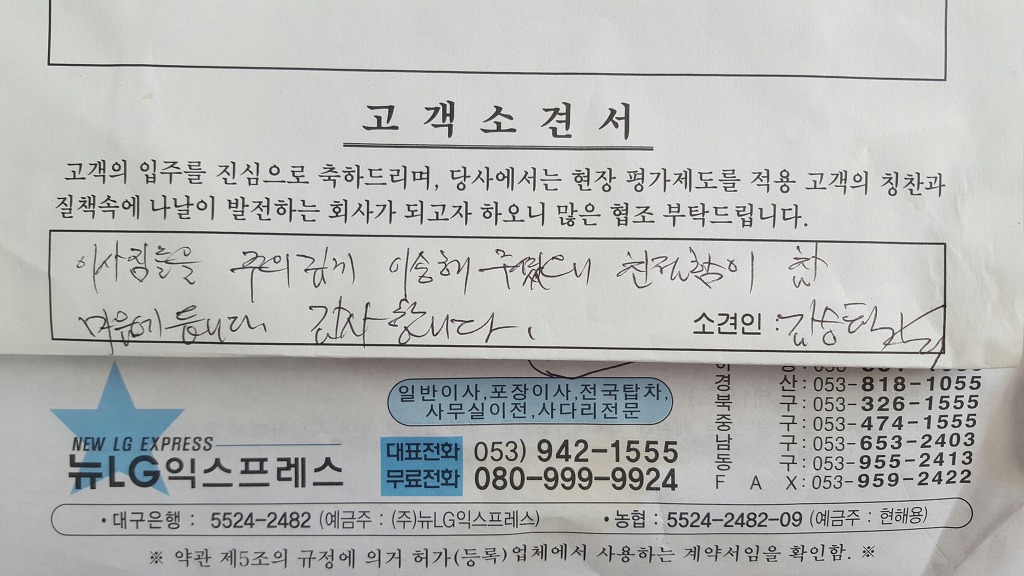 고객소견서
고객의 입주를 진심으로 축하드리며, 당사에서는 현장 평가제도를 적용 고객의 칭찬과
질책속에 나날이 발전하는 회사가 되고자 하오니 많은 협조 부탁드립니다.
이사짐들을 주의깊게 이송해 주셨으며 친절함이 참
마음에 듭니다. 감사합니다.
소견인 :
일반이사,포장이사,전국탑차,
사무실이전,사다리전문
NEW LG EXPRESS
뉴LG익스프레스
대표전화 053) 942-1555
무료전화 080-999-9924
경 산:053-818-1055
북 구:053-326-1555
중 구:053-474-1555
남 구:053-653-2403
동 구:053-955-2413
F A X:053-959-2422
•대구은행 : 5524-2482 (예금주 : (주)뉴LG익스프레스) •농협 : 5524-2482-09 (예금주 : 현해용)
※ 약관 제5조의 규정에 의거 허가(등록)업체에서 사용하는 계약서임을 확인함. ※